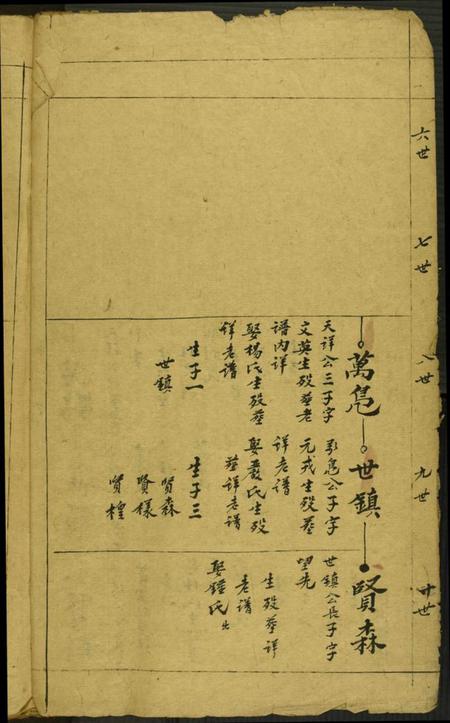 六世
七世
八世
九世
十世
萬鳧
天詳公三子字
文英生殁葬老
譜內详
娶楊氏生殁葬
详老譜
生子一
世鎮
世鎮
萬鳧公子字
元戎生殁葬
详老譜
娶嚴氏生殁
葬详老譜
生子三
賢森
賢樣
賢橙
賢森
世鎮公長子字
望先
生殁葬详
老譜
娶鍾氏